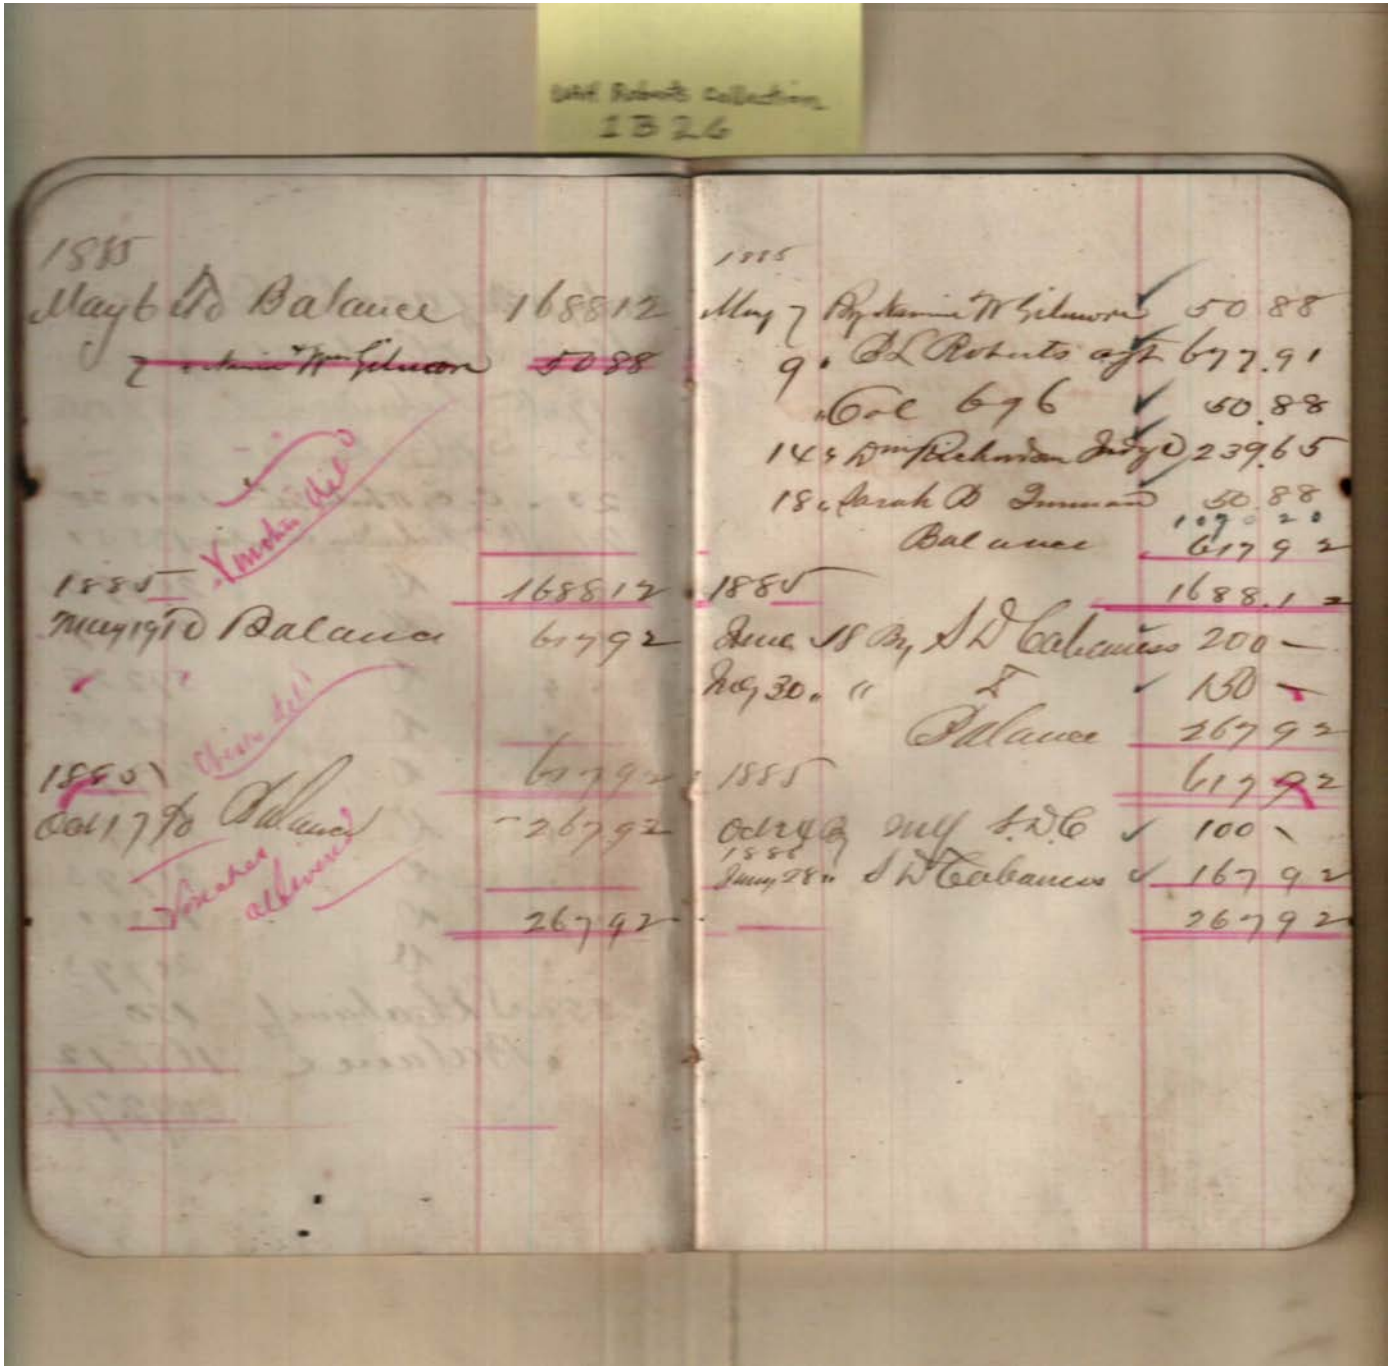 UAH Roberts Collection
1B26
1885
May 6 To Balance 1688 12
7 Gilmore 50 88
Voucher del
1885 1688 12
May 19 To Balance 617 92
del
1885 617 92
Oct 17 To Balance 267 92
Voucher
delivered
267 92
1885
May 7 By Nannie W Gilmore 50 88
9 " Roberts agt 677.91
" Col 696 50.88
14 " Richardson Judge 239.65
18 " Sarah D Inman 50 88
1070 20
Balance 617 92
1885 1688.12
June 18 By S D Cabaniss 200 –
July 30 " " 150 –
Balance 267 92
1885 617 92
Oct 24 By my S.D.C 100
1886
Jany 28 " S D Cabaniss 167 92
267 92